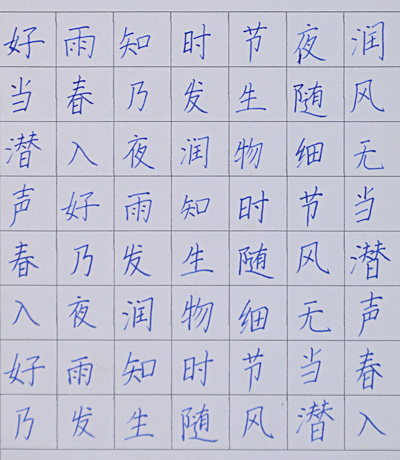 好雨知时节夜润
当春乃发生随风
潜入夜润物细无
声好雨知时节当
春乃发生随风潜
入夜润物细无声
好雨知时节当春
乃发生随风潜入